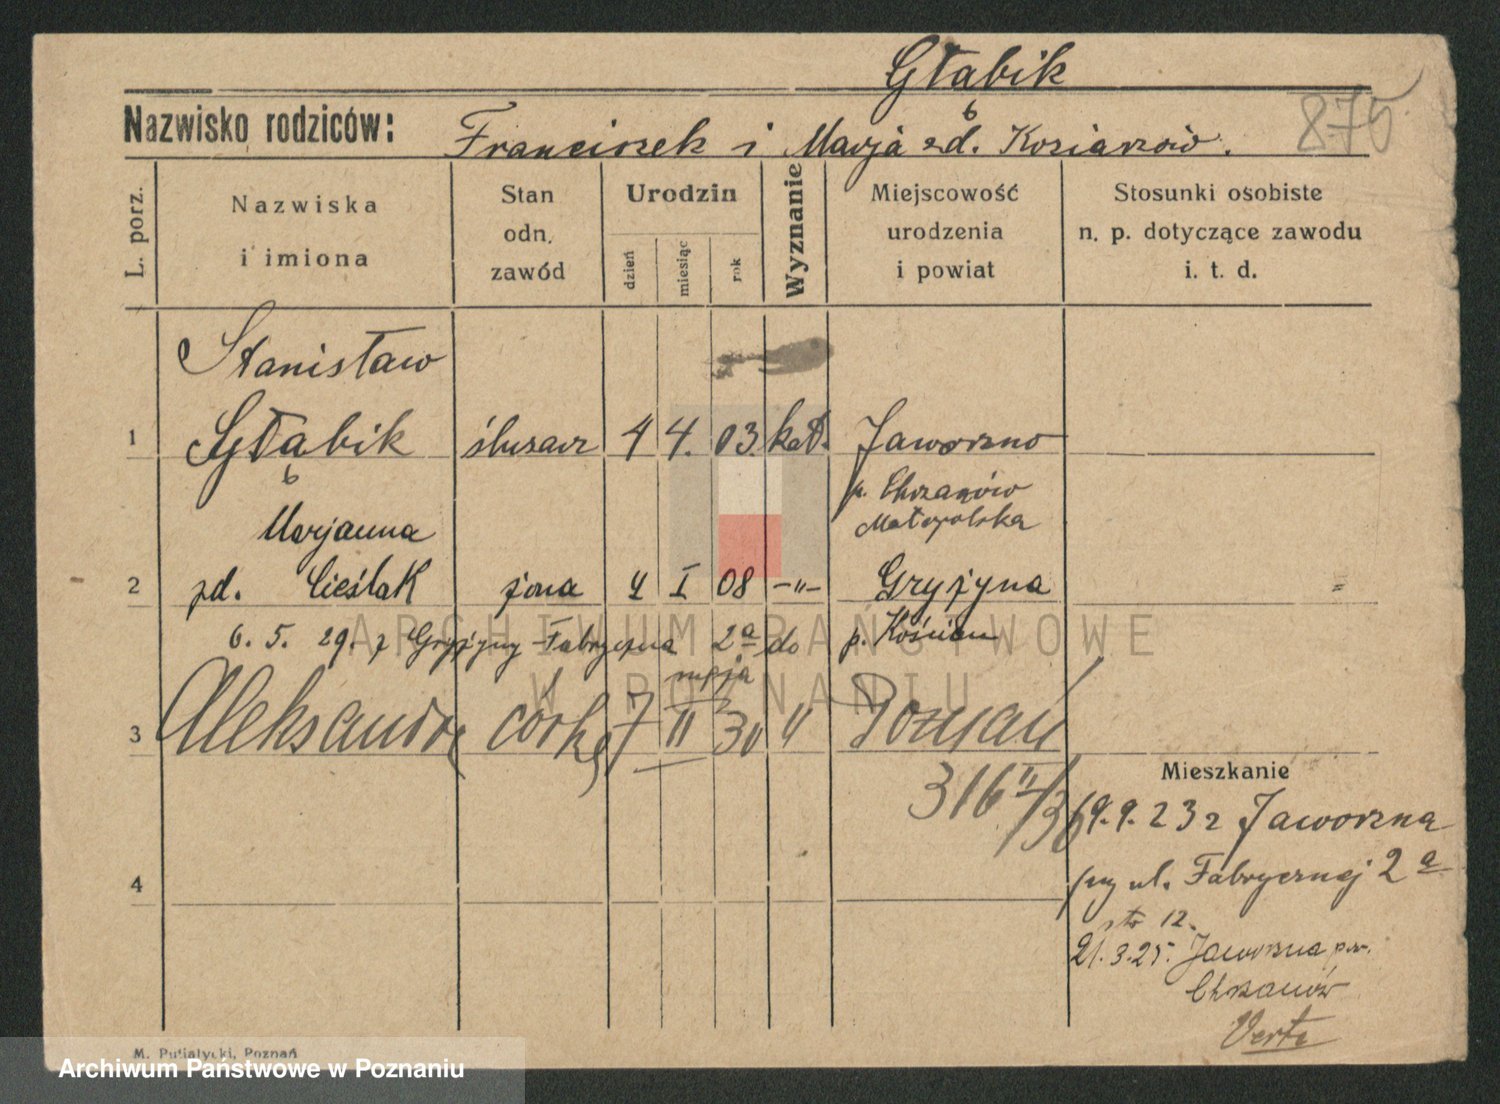 Głabik
Nazwisko rodziców:
b
Franciszek i Marja zd. Koziarzów.
875
L. porz.
Nazwiska
i imiona
Stan
odn.
zawód
Urodzin
dzień
miesiąc
rok
Wyznanie
Miejscowość
urodzenia
i powiat
Stosunki osobiste
n. p. dotyczące zawodu
i. t. d.
Stanisław
1 Głabik ślusarz 4 4. 03. kat. Jaworzno
b
p. Chrzanów
Małopolska
Marjanna
2 zd. Cieślak żona 4 I 08 -"- Gryżyna "
6. 5. 29. z Gryżyny Fabryczna 2a do p. Kościan
ARCHIWUM PAŃSTWOWE
W POZNANIU
3 Aleksandra córka 7 II 30 " Poznań
316 II/36
Mieszkanie
19.9.23 z Jaworzna
przy ul. Fabrycznej 2a
4
str 12.
21.3.25. Jaworzna pow.
Chrzanów
Verte
M. Putiatycki, Poznań
Archiwum Państwowe w Poznaniu